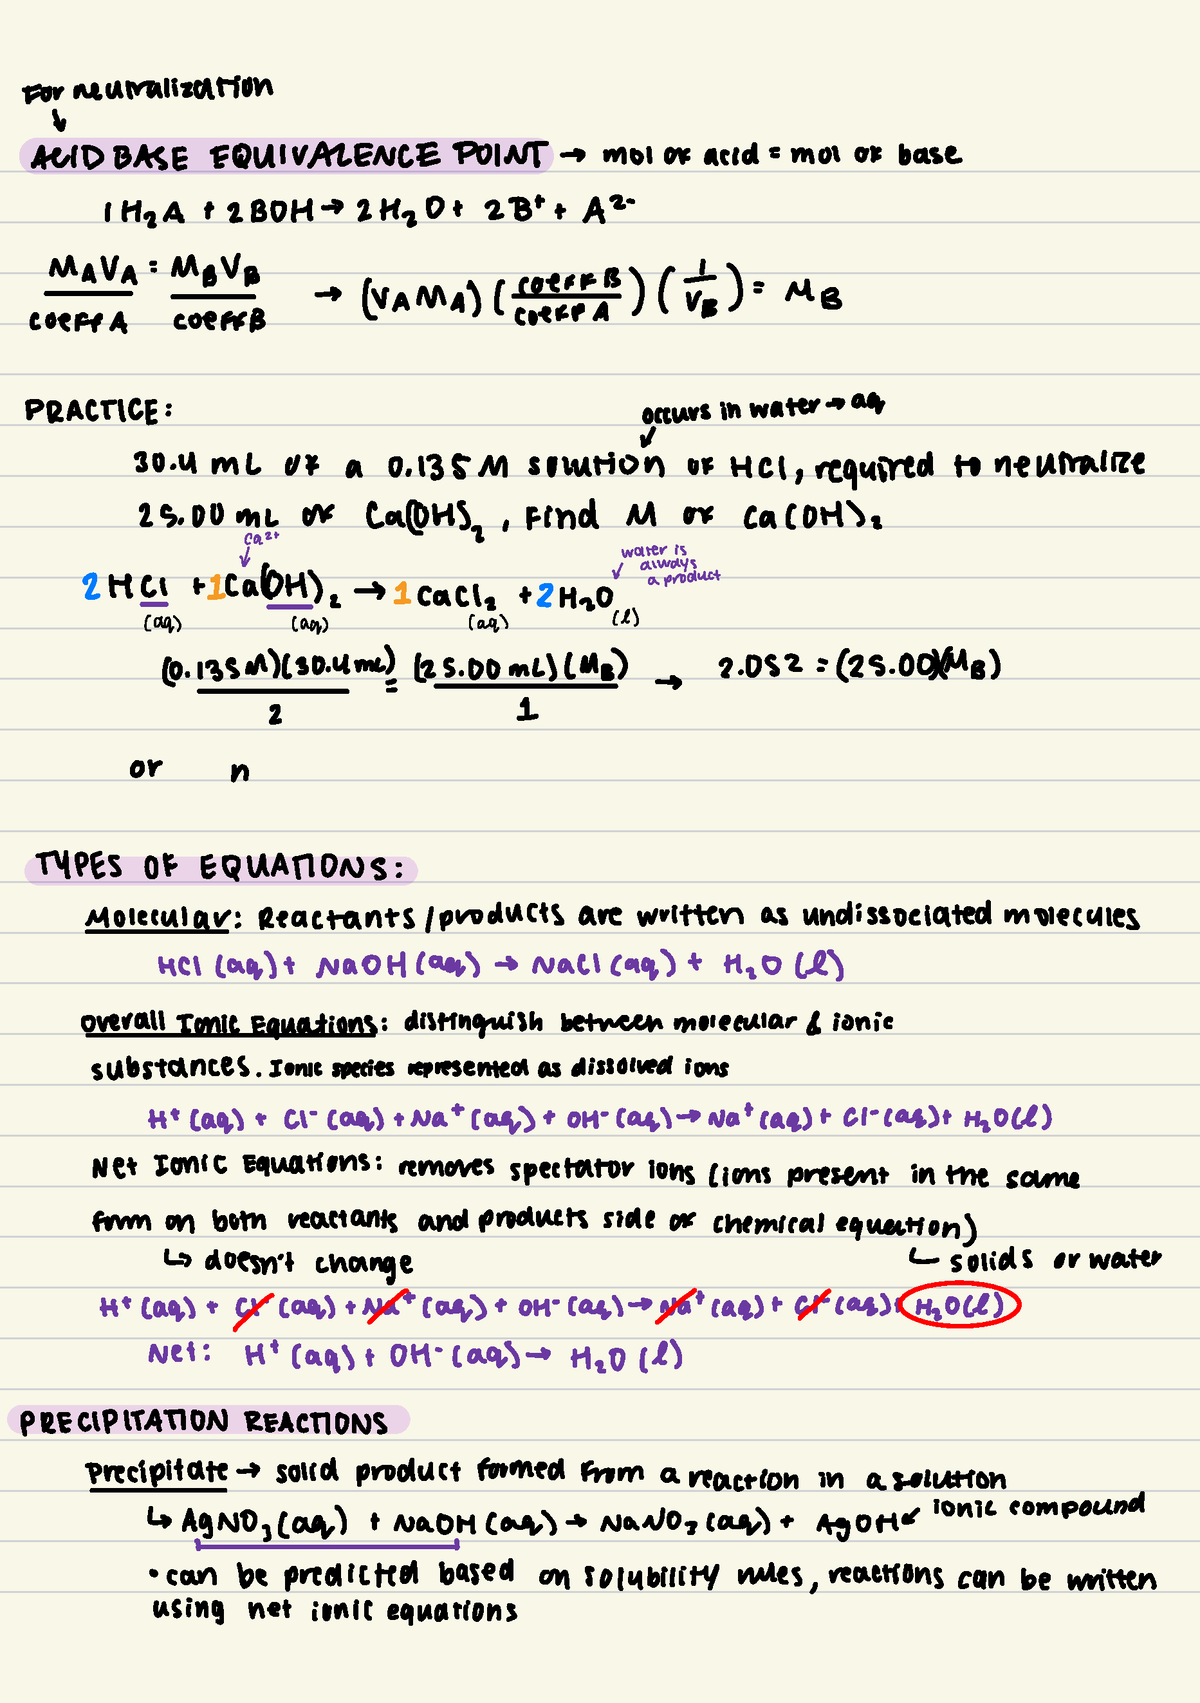 For neutralization
↓
ACID BASE EQUIVALENCE POINT → mol of acid = mol of base
1H₂A + 2BOH → 2H₂O + 2B⁺ + A²⁻
MAVA = MBVB → (VAMA) (coeff B / coeff A) (1 / VB) = MB
coeff A coeff B
PRACTICE:
occurs in water → aq
30.4 mL of a 0.135 M solution of HCl, required to neutralize
25.00 mL of Ca(OH)₂, Find M of Ca(OH)₂
Ca²⁺
water is
always
a product
2HCl + 1Ca(OH)₂ → 1CaCl₂ + 2H₂O
(aq) (aq) (aq) (l)
(0.135M)(30.4mL) = (25.00 mL)(MB) → 2.052 = (25.00)(MB)
2 1
or n
TYPES OF EQUATIONS:
Molecular: Reactants/products are written as undissociated molecules
HCl (aq) + NaOH (aq) → NaCl (aq) + H₂O (l)
Overall Ionic Equations: distinguish between molecular & ionic
substances. Ionic species represented as dissolved ions
H⁺ (aq) + Cl⁻ (aq) + Na⁺ (aq) + OH⁻ (aq) → Na⁺ (aq) + Cl⁻ (aq) + H₂O(l)
Net Ionic Equations: removes spectator ions (ions present in the same
form on both reactants and products side of chemical equation)
↳ doesn't change
↳ solids or water
H⁺ (aq) + Cl⁻ (aq) + Na⁺ (aq) + OH⁻ (aq) → Na⁺ (aq) + Cl⁻ (aq) + H₂O(l)
Net: H⁺ (aq) + OH⁻ (aq) → H₂O (l)
PRECIPITATION REACTIONS
Precipitate → solid product formed from a reaction in a solution
↳ AgNO₃ (aq) + NaOH (aq) → NaNO₃ (aq) + AgOH ← ionic compound
• can be predicted based on solubility rules, reactions can be written
using net ionic equations